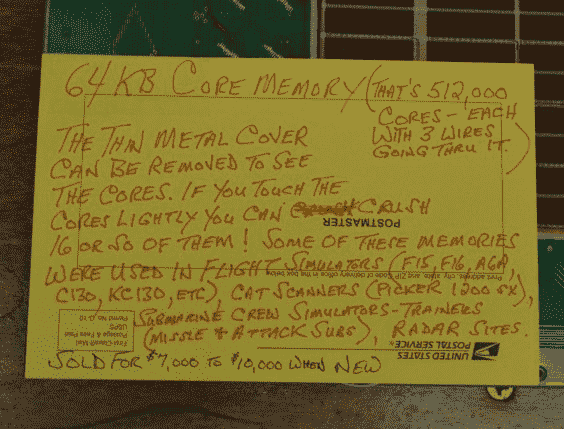 64KB CORE MEMORY (THAT'S 512,000
CORES - EACH
WITH 3 WIRES
GOING THRU IT.)
THE THIN METAL COVER
CAN BE REMOVED TO SEE
THE CORES. IF YOU TOUCH THE
CORES LIGHTLY YOU CAN CRUSH
16 OR SO OF THEM! SOME OF THESE MEMORIES
WERE USED IN FLIGHT SIMULATORS (F15, F16, A6A,
C130, KC130, ETC), CAT SCANNERS (PICKER 1200 SX),
SUBMARINE CREW SIMULATORS-TRAINERS
(MISSLE & ATTACK SUBS), RADAR SITES.
SOLD FOR $7,000 TO $10,000 WHEN NEW
POSTMASTER
Print address, city, state, and ZIP Code of delivery office in the box below
UNITED STATES
POSTAL SERVICE
First-Class Mail
Postage & Fees Paid
USPS
Permit No. G-10